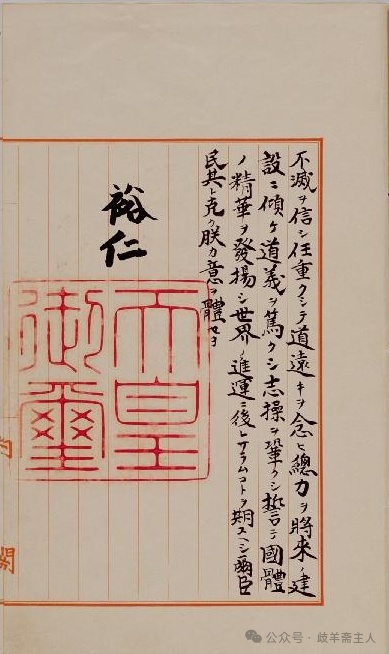 不滅ヲ信シ任重クシテ道遠キヲ念ヒ總力ヲ將來ノ建
設ニ傾ケ道義ヲ篤クシ志操ヲ鞏クシ誓テ國體
ノ精華ヲ發揚シ世界ノ進運ニ後レサラムコトヲ期スヘシ爾臣
民其レ克ク朕カ意ヲ體セヨ
裕仁
天皇
御璽
公众号 · 歧羊斋主人